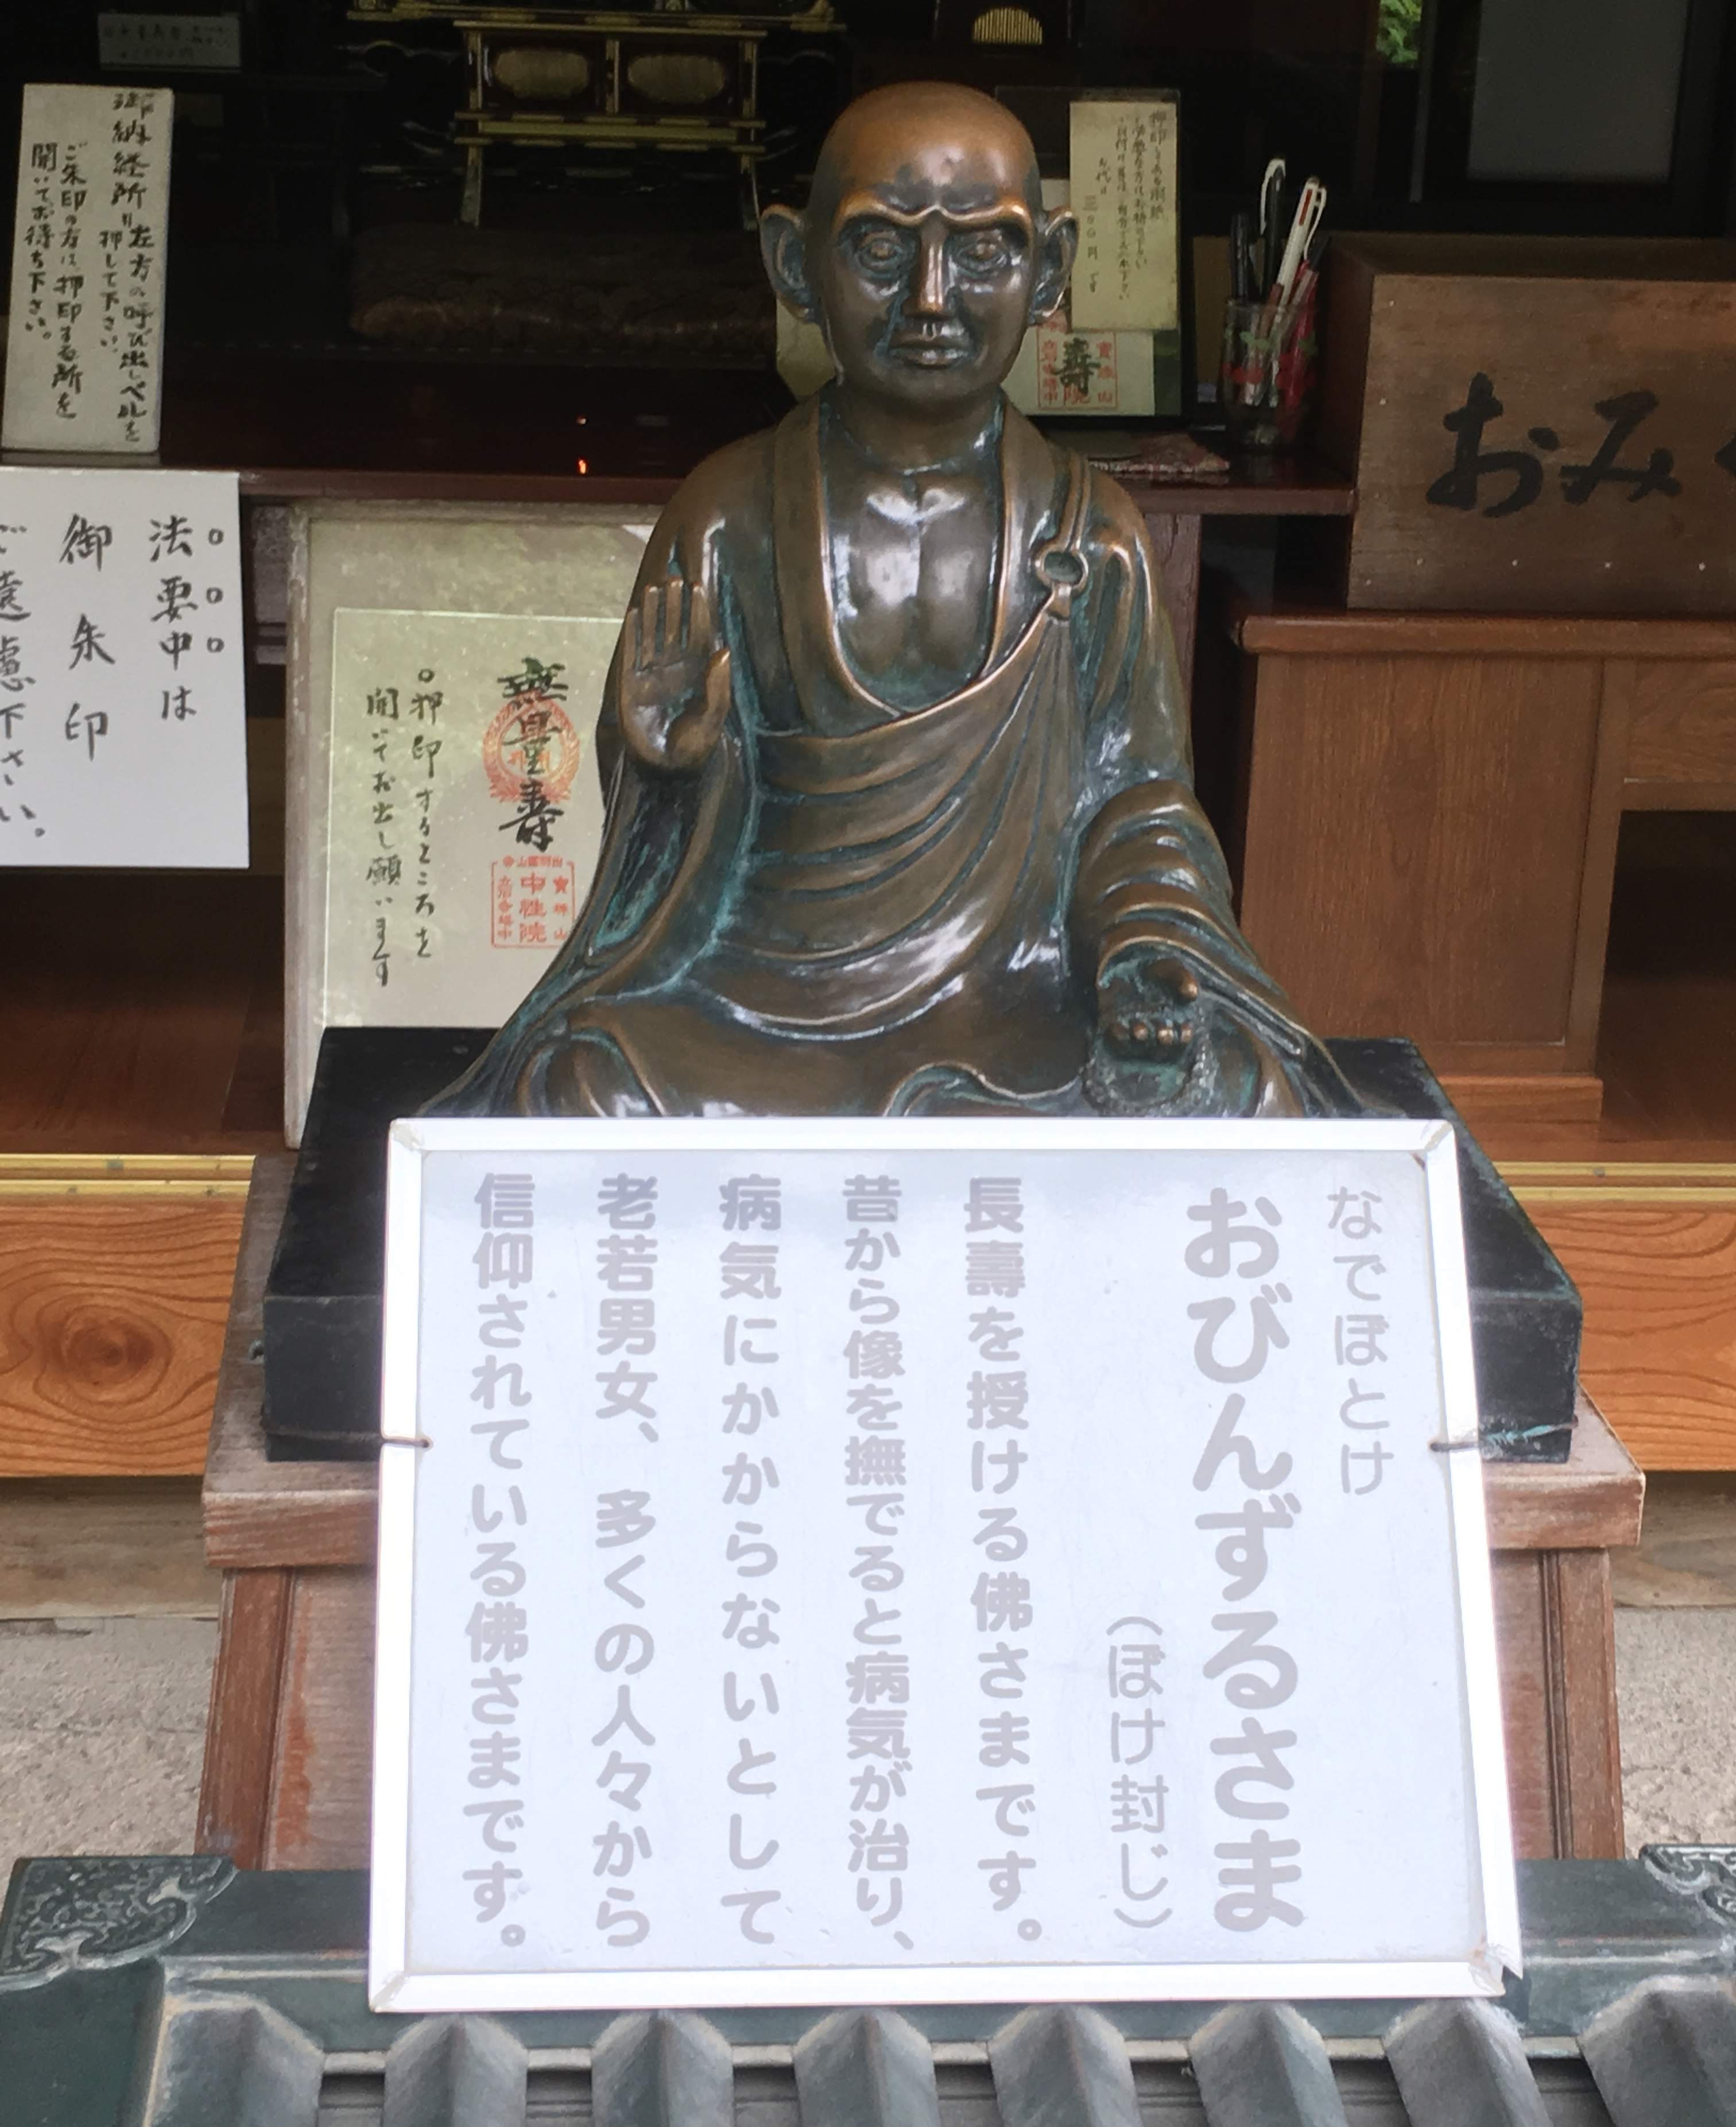 なでぼとけ
おびんずるさま
（ぼけ封じ）
長壽を授ける佛さまです。
昔から像を撫でると病気が治り、
病気にかからないとして
老若男女、多くの人々から
信仰されている佛さまです。
御納経所は左方の呼び出しベルを
押して下さい。
ご朱印の方は、押印する所を
開いてお待ち下さい。
法要中は
御朱印
ご遠慮下さい。
無量壽
押印するところを
開いてお出し願います
寳珠山
中性院
立石寺塔中
おみく
壽